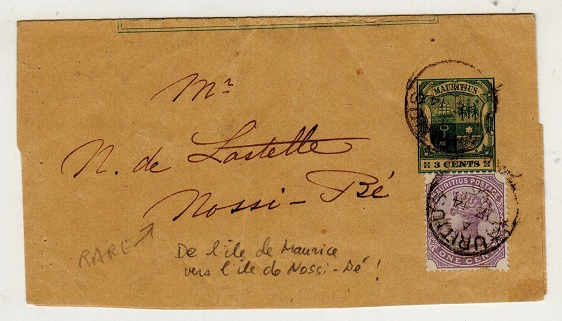 Mr
N. de Lastelle
Nossi-Bé
RARE
De l'île de Maurice
vers l'île de Nossi-Bé !
MAURITIUS
3 CENTS
MAURITIUS POSTAGE
ONE CENT